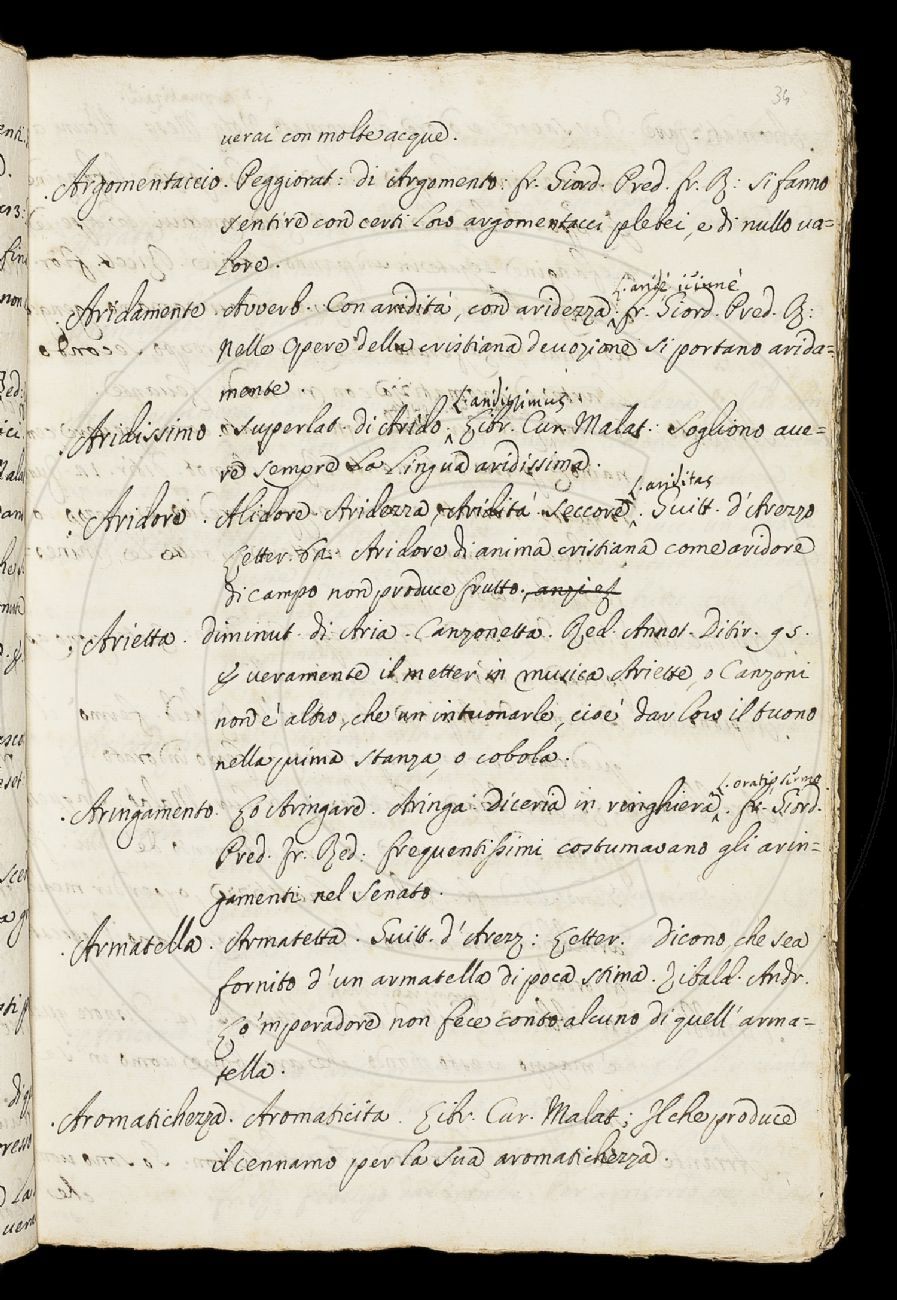 34
verai con molte acque.
Argomentaccio. Peggiorat: di Argomento: fr. Giord. Pred. fr. R: si fanno
sentire con certi loro argomentacci plebei, e di nullo va=
lore.
L. aridè
Aridamente. Avverb. Con aridità, con aridezza. fr. Giord. Pred. R:
Nelle Opere della cristiana devozione si portano arida=
mente.
L. aridissimus
Aridissimo. Superlat. di Arido. Libr. Cur. Malat. Sogliono ave=
re sempre la lingua aridissima.
L. ariditas
Aridore. Alidore. Aridezza, Aridità. Seccore. Guitt. d'Arezzo
Letter. 62. Aridore di anima cristiana come aridore
di campo non produce frutto.
Arietta. Diminut. di Aria. Canzonetta. Red. Annot. Ditir. 95.
E veramente il metter in musica Ariette, o Canzoni
non è altro, che un intuonarle, cioè dar loro il tuono
nella prima stanza, o cobola.
L. oratio, sermo
Aringamento. Lo Aringare. Aringa. Diceria in ringhiera. fr. Giord.
Pred. fr. Red: frequentissimi costumavano gli arin=
gamenti nel Senato.
Armatella. Armatetta. Guitt. d'Arezz: Letter. Dicono, che sea
fornito d'un armatella di poca stima. Zibald. Andr.
Lo 'mperadore non fece conto alcuno di quell' arma=
tella.
Aromatichezza. Aromaticita. Libr. Cur. Malat: Il che produce
il cennamo per la sua aromatichezza.